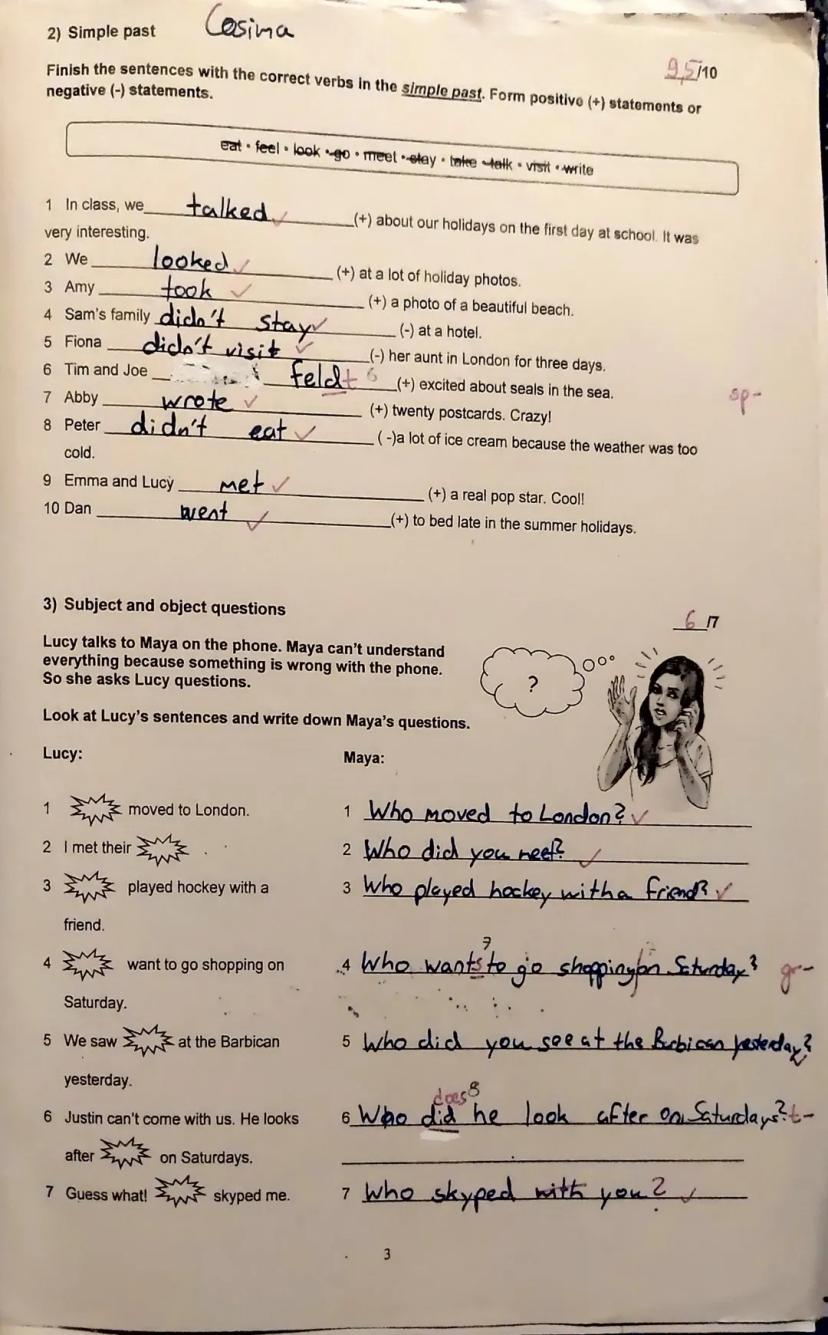 2) Simple past Cosima
9,5/10
Finish the sentences with the correct verbs in the simple past. Form positive (+) statements or
negative (-) statements.
eat • feel • look • go • meet • stay • take • talk • visit • write
1 In class, we talked (+) about our holidays on the first day at school. It was
very interesting.
2 We looked (+) at a lot of holiday photos.
3 Amy took (+) a photo of a beautiful beach.
4 Sam's family didn't stay (-) at a hotel.
5 Fiona didn't visit (-) her aunt in London for three days.
6 Tim and Joe feldt 6 (+) excited about seals in the sea. sp-
7 Abby wrote (+) twenty postcards. Crazy!
8 Peter didn't eat ( -)a lot of ice cream because the weather was too
cold.
9 Emma and Lucy met (+) a real pop star. Cool!
10 Dan went (+) to bed late in the summer holidays.
3) Subject and object questions
6/7
Lucy talks to Maya on the phone. Maya can't understand
everything because something is wrong with the phone.
So she asks Lucy questions.
?
Look at Lucy's sentences and write down Maya's questions.
Lucy: Maya:
1 moved to London. 1 Who moved to London?
2 I met their . 2 Who did you meet?
3 played hockey with a 3 Who played hockey with a friend?
friend.
7
4 want to go shopping on 4 Who wants to go shopping on Saturday? gr-
Saturday.
5 We saw at the Barbican 5 Who did you see at the Barbican yesterday?
yesterday.
does 8
6 Justin can't come with us. He looks 6 Who did he look after on Saturdays? t-
after on Saturdays.
7 Guess what! skyped me. 7 Who skyped with you?
3